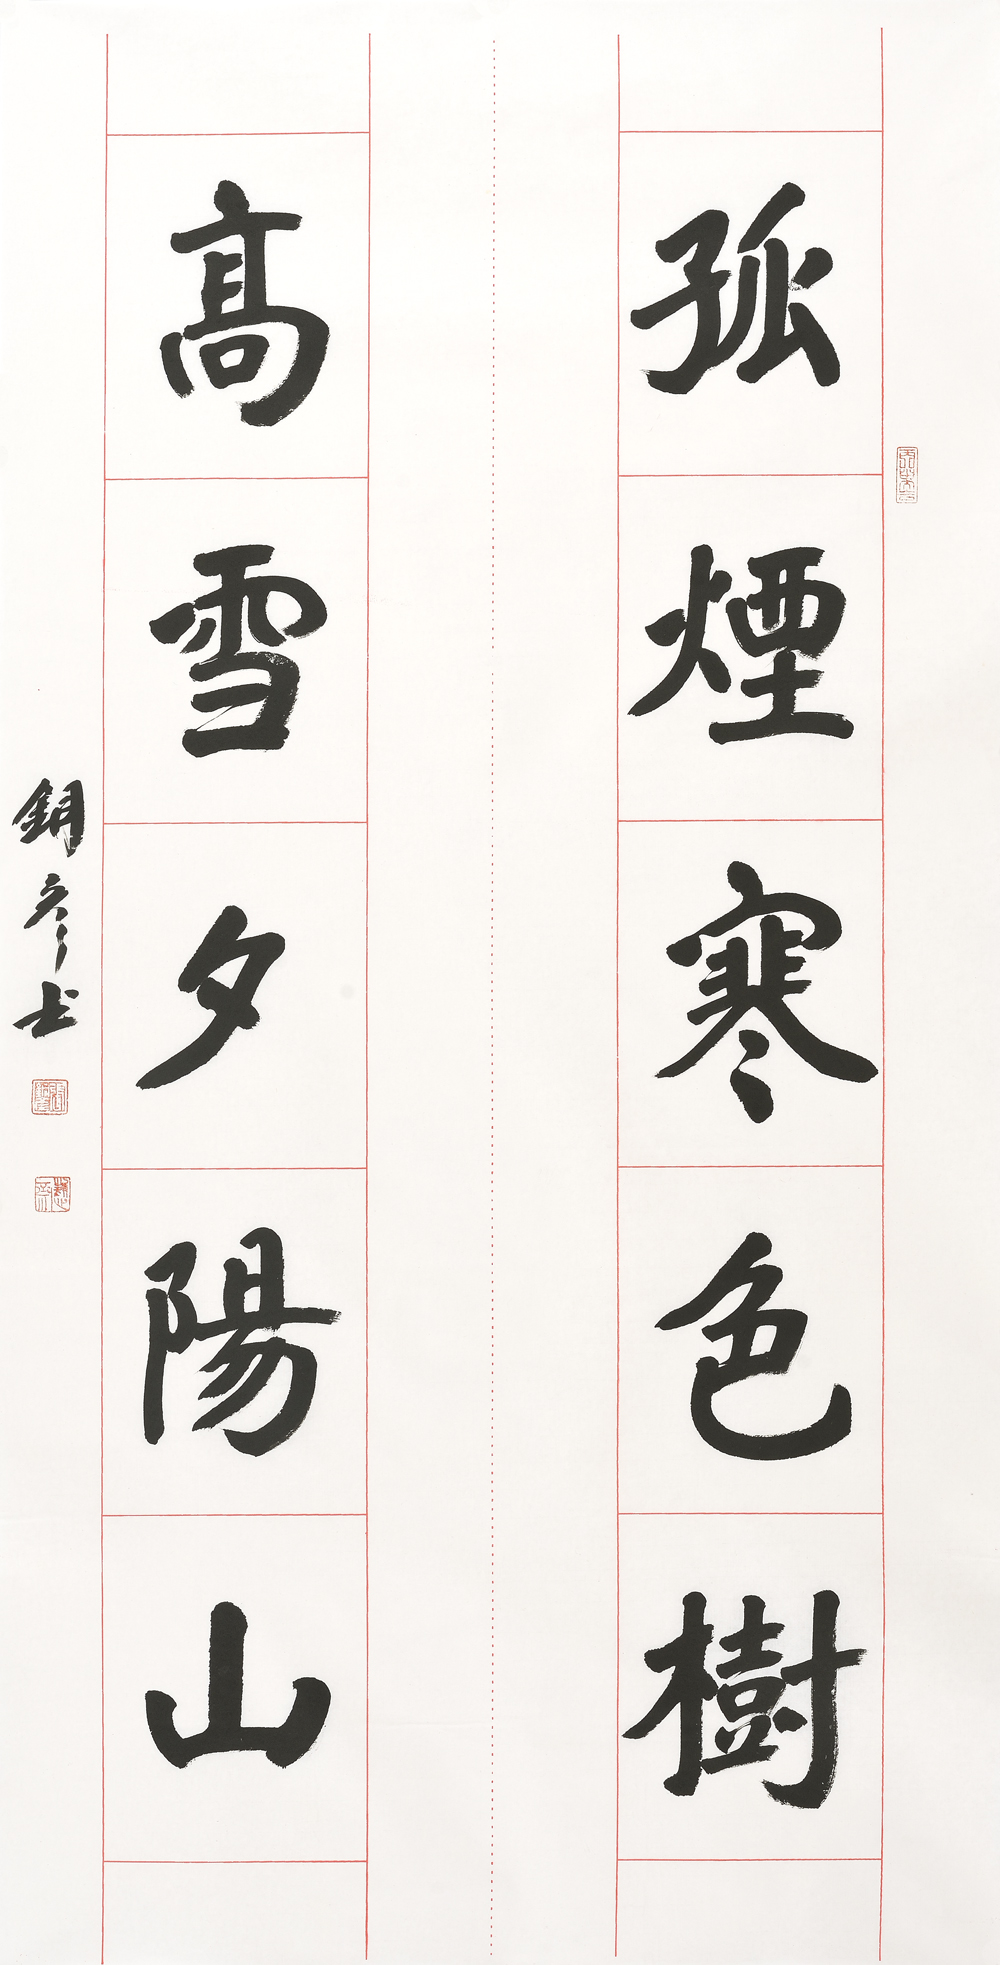 孤煙寒色樹
高雪夕陽山
銅彥书